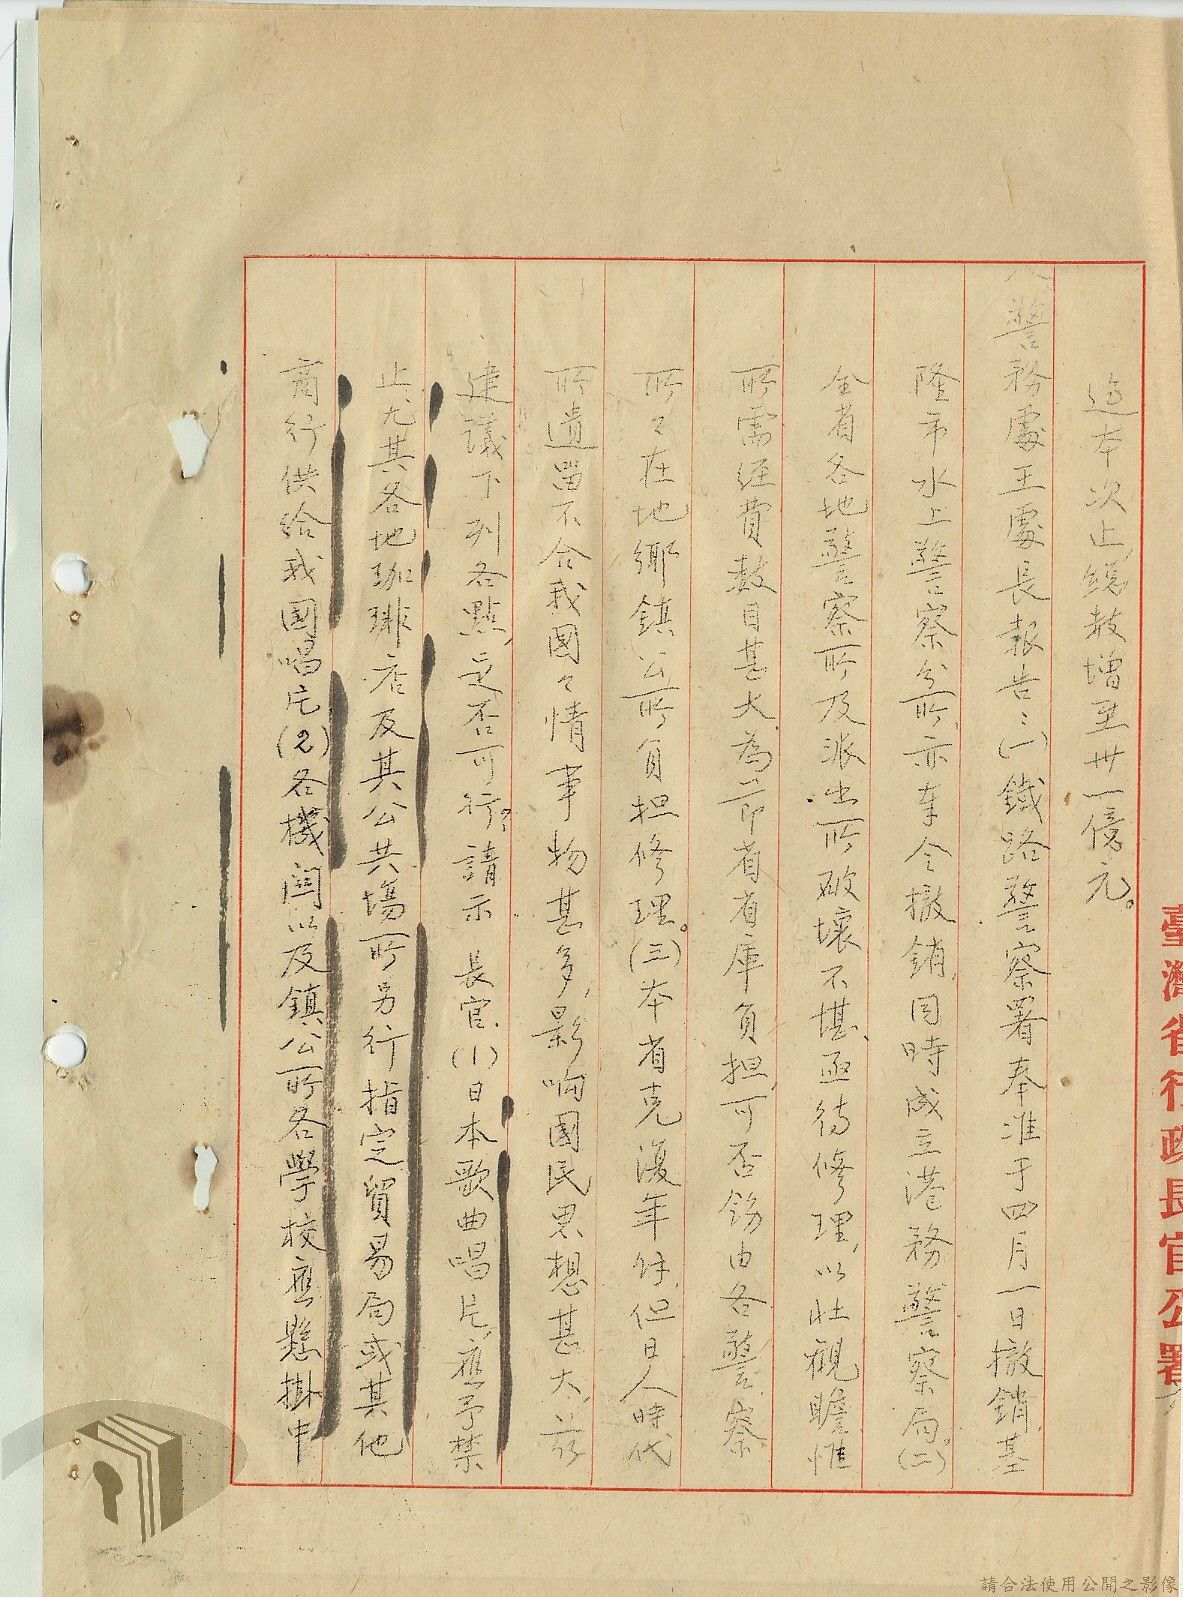 臺灣省行政長官公署
迄本次止，總數增至卅一億元。
警務處王處長報告：(一)鐵路警察署奉准于四月一日撤銷，基
隆市水上警察分所，亦奉令撤銷，同時成立港務警察局。(二)
全省各地警察所及派出所破壞不堪，亟待修理，以壯觀瞻，惟
所需經費數目甚大，為節省省庫負担，可否飭由各警察
所々在地鄉鎮公所負担修理。(三)本省克復年餘，但日人時代
所遺畱不合我國々情事物甚多，影响國民思想甚大，茲
建議下列各點，是否可行？請示 長官、(1)日本歌曲唱片，應予禁
止，尤其各地珈琲店及其公共場所另行指定貿易局或其他
商行供給我國唱片(2)各機関以及鎮公所各學校應懸掛中
請合法使用公開之影像